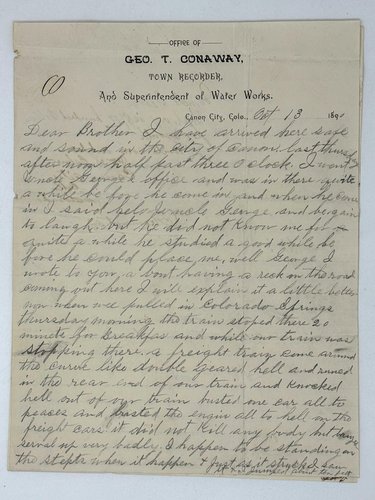 OFFICE OF
GEO. T. CONAWAY,
TOWN RECORDER,
And Superintendent of Water Works.
Canon City, Colo., Oct 13 189
Dear Brother I have arrived here safe
and sound in the city of Canon last thursday
after noon half past three O clock I went
uncle George's office and was in there quite
a while be fore he come in and when he come
in I said helo uncle George and began
to laugh but he did not know me for
quite a while he studied a good while be
fore he could place me, well George I
wrote to you, a bout having a reck on the road
coming out here I will explain it a little better
now when we pulled in Colorado Springs
thursday morning the train stoped there 20
minets for breakfast and while our train was
stopping there a freight train come around
the curve like double geared hell and runed
in the rear end of our train and knocked
hell out of our train busted one car all to
peaces and busted the engin all to hell on the
freight cars it did not kill any body but
several up very badly I happen to be standing on
the stepts when it happen & just as it struck I saw
it and jumped about ten feet